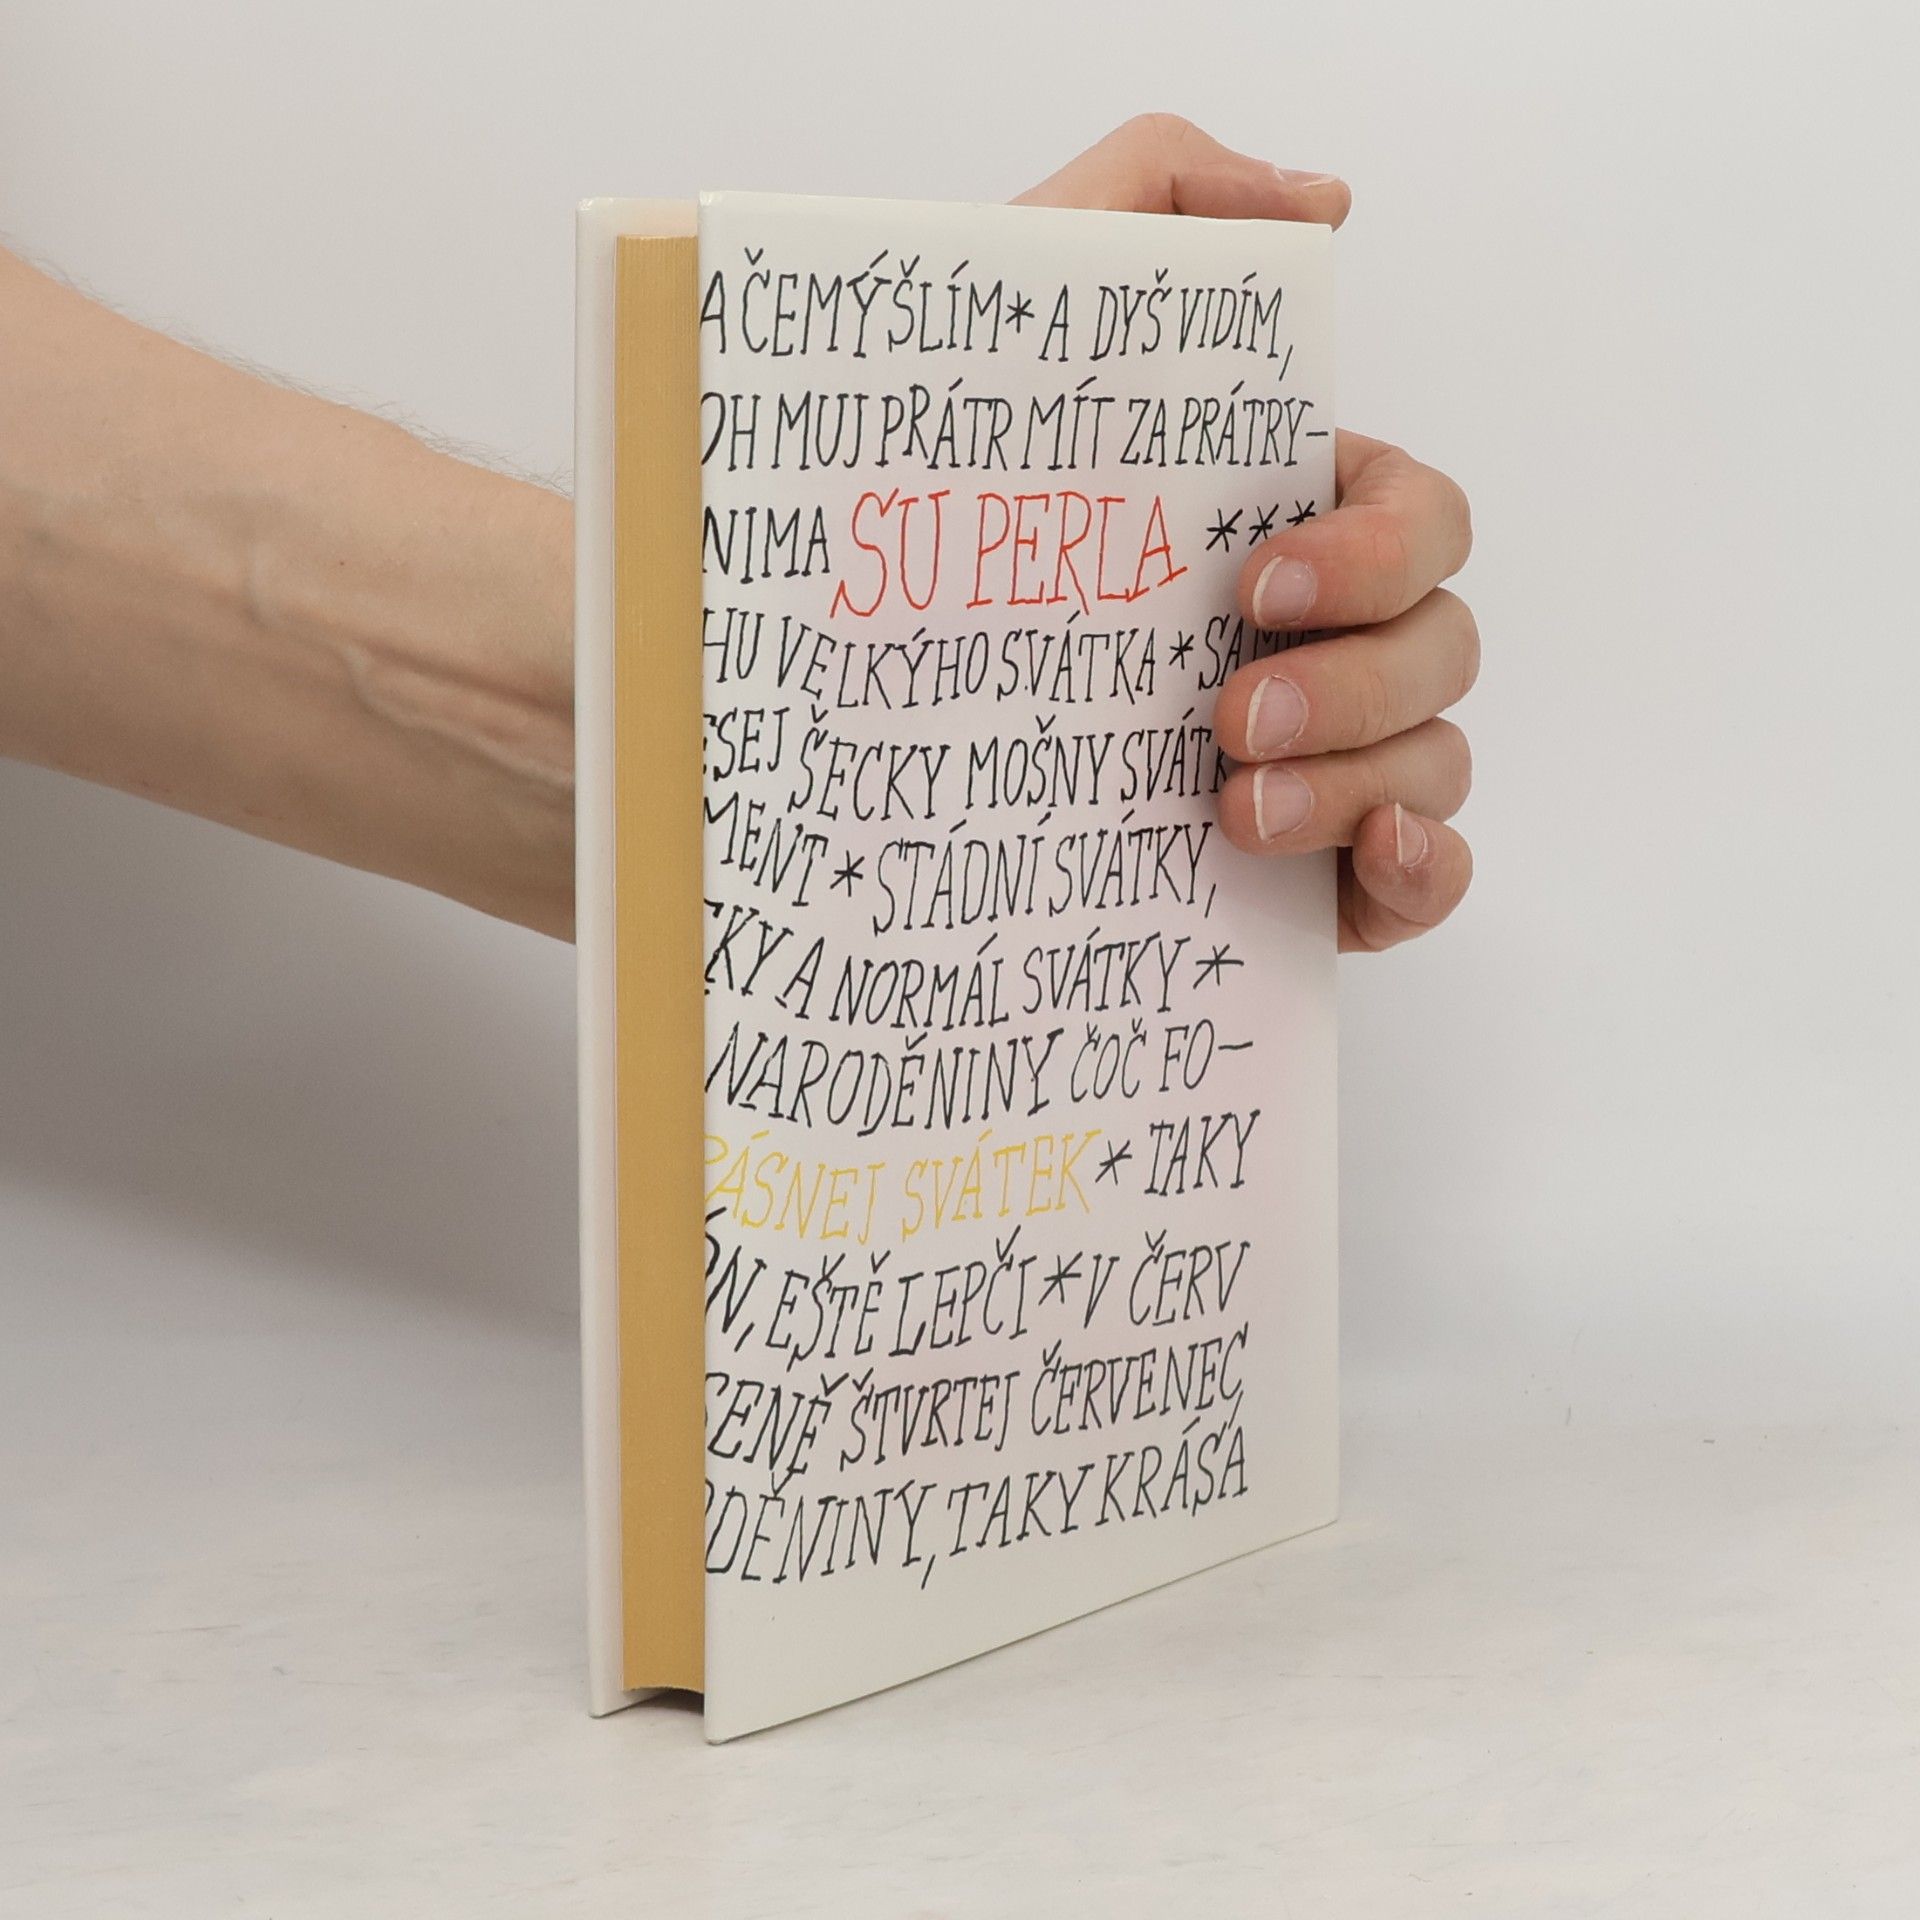 A ČEMÝŠLÍM * A DYŠ VIDÍM,
OH MUJ PRÁTR MÍT ZA PRÁTRY–
NIMA SU PERLA ***
HU VELKÝHO SVÁTKA *
ESEJ ŠECKY MOŠNY
MENT * STÁDNÍ SVÁTKY,
CKY A NORMÁL SVÁTKY *
NARODĚNINY ČOČ FO–
RÁSNEJ SVÁTEK * TAKY
ÓN, EŠTĚ LEPČI * V ČERV
SENĚ ŠTVRTEJ ČERVENEC,
ODĚNINY, TAKY KRÁSA